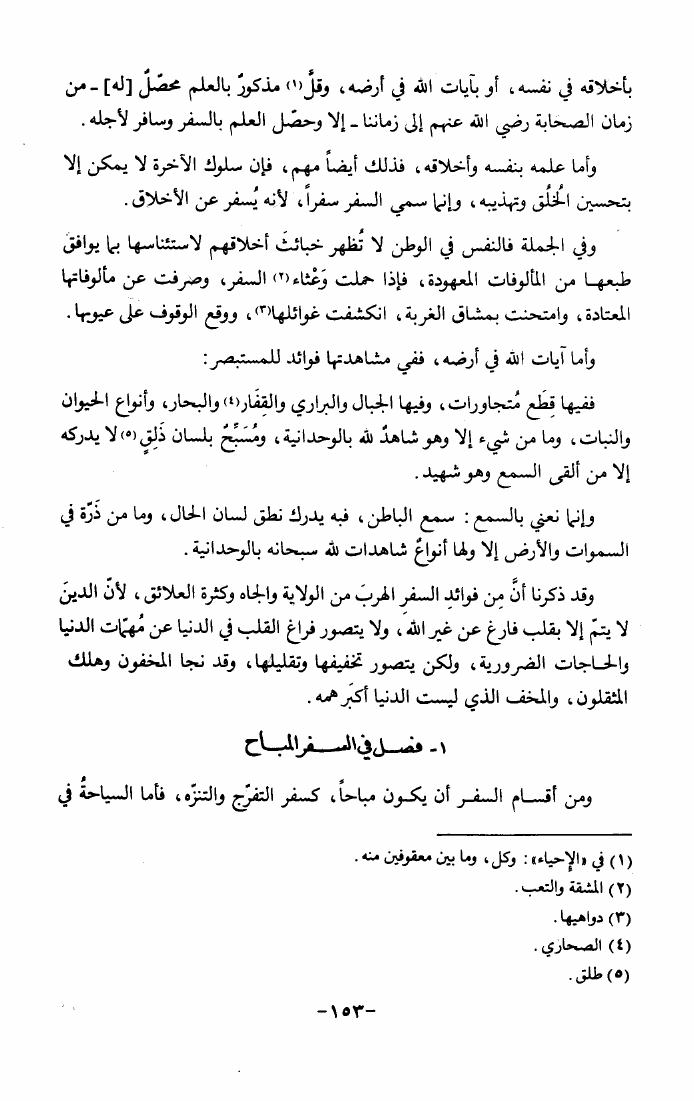 بأخلاقه في نفسه، أو بآيات الله في أرضه، وقلَّ(١) مذكورٌ بالعلم محصّلٌ [له] ـ من
زمان الصحابة رضي الله عنهم إلى زماننا ـ إلا وحصّل العلم بالسفر وسافر لأجله.
وأما علمه بنفسه وأخلاقه، فذلك أيضاً مهم، فإن سلوك الآخرة لا يمكن إلا
بتحسين الخُلُق وتهذيبه، وإنما سمي السفر سفراً، لأنه يُسفر عن الأخلاق.
وفي الجملة فالنفس في الوطن لا تُظهر خبائثَ أخلاقهم لاستئناسها بما يوافق
طبعهـا من المألوفات المعهودة، فإذا حملت وَعْثاء(٢) السفر، وصرفت عن مألوفاتها
المعتادة، وامتحنت بمشاق الغربة، انكشفت غوائلها(٣)، ووقع الوقوف على عيوبها.
وأما آيات الله في أرضه، ففي مشاهدتها فوائد للمستبصر:
ففيها قِطَع مُتجاورات، وفيها الجبال والبراري والقِفَار(٤) والبحار، وأنواع الحيوان
والنبات، وما من شيء إلا وهو شاهدٌ لله بالوحدانية، ومُسَبِّحٌ بلسان ذَلِقٍ(٥) لا يدركه
إلا من ألقى السمع وهو شهيد.
وإنما نعني بالسمع: سمع الباطن، فبه يدرك نطق لسان الحال، وما من ذَرّة في
السموات والأرض إلا ولها أنواعٌ شاهدات لله سبحانه بالوحدانية.
وقد ذكرنا أنَّ مِن فوائدِ السفرِ الهربَ من الولاية والجاه وكثرة العلائق، لأنّ الدينَ
لا يتمّ إلا بقلب فارغ عن غير الله، ولا يتصور فراغ القلب في الدنيا عن مُهمّات الدنيا
والحـاجات الضرورية، ولكن يتصور تخفيفها وتقليلها، وقد نجا المخفون وهلك
المثقلون، والمخف الذي ليست الدنيا أكبَر همه.
١- فصـل في السـفر المبـاح
ومن أقسـام السفـر أن يكـون مباحاً، كسفر التفرّج والتنزّه، فأما السياحةُ في
(١) في «الإحياء»: وكل، وما بين معقوفين منه.
(٢) المشقة والتعب.
(٣) دواهيها.
(٤) الصحاري.
(٥) طلق.
-١٥٣-